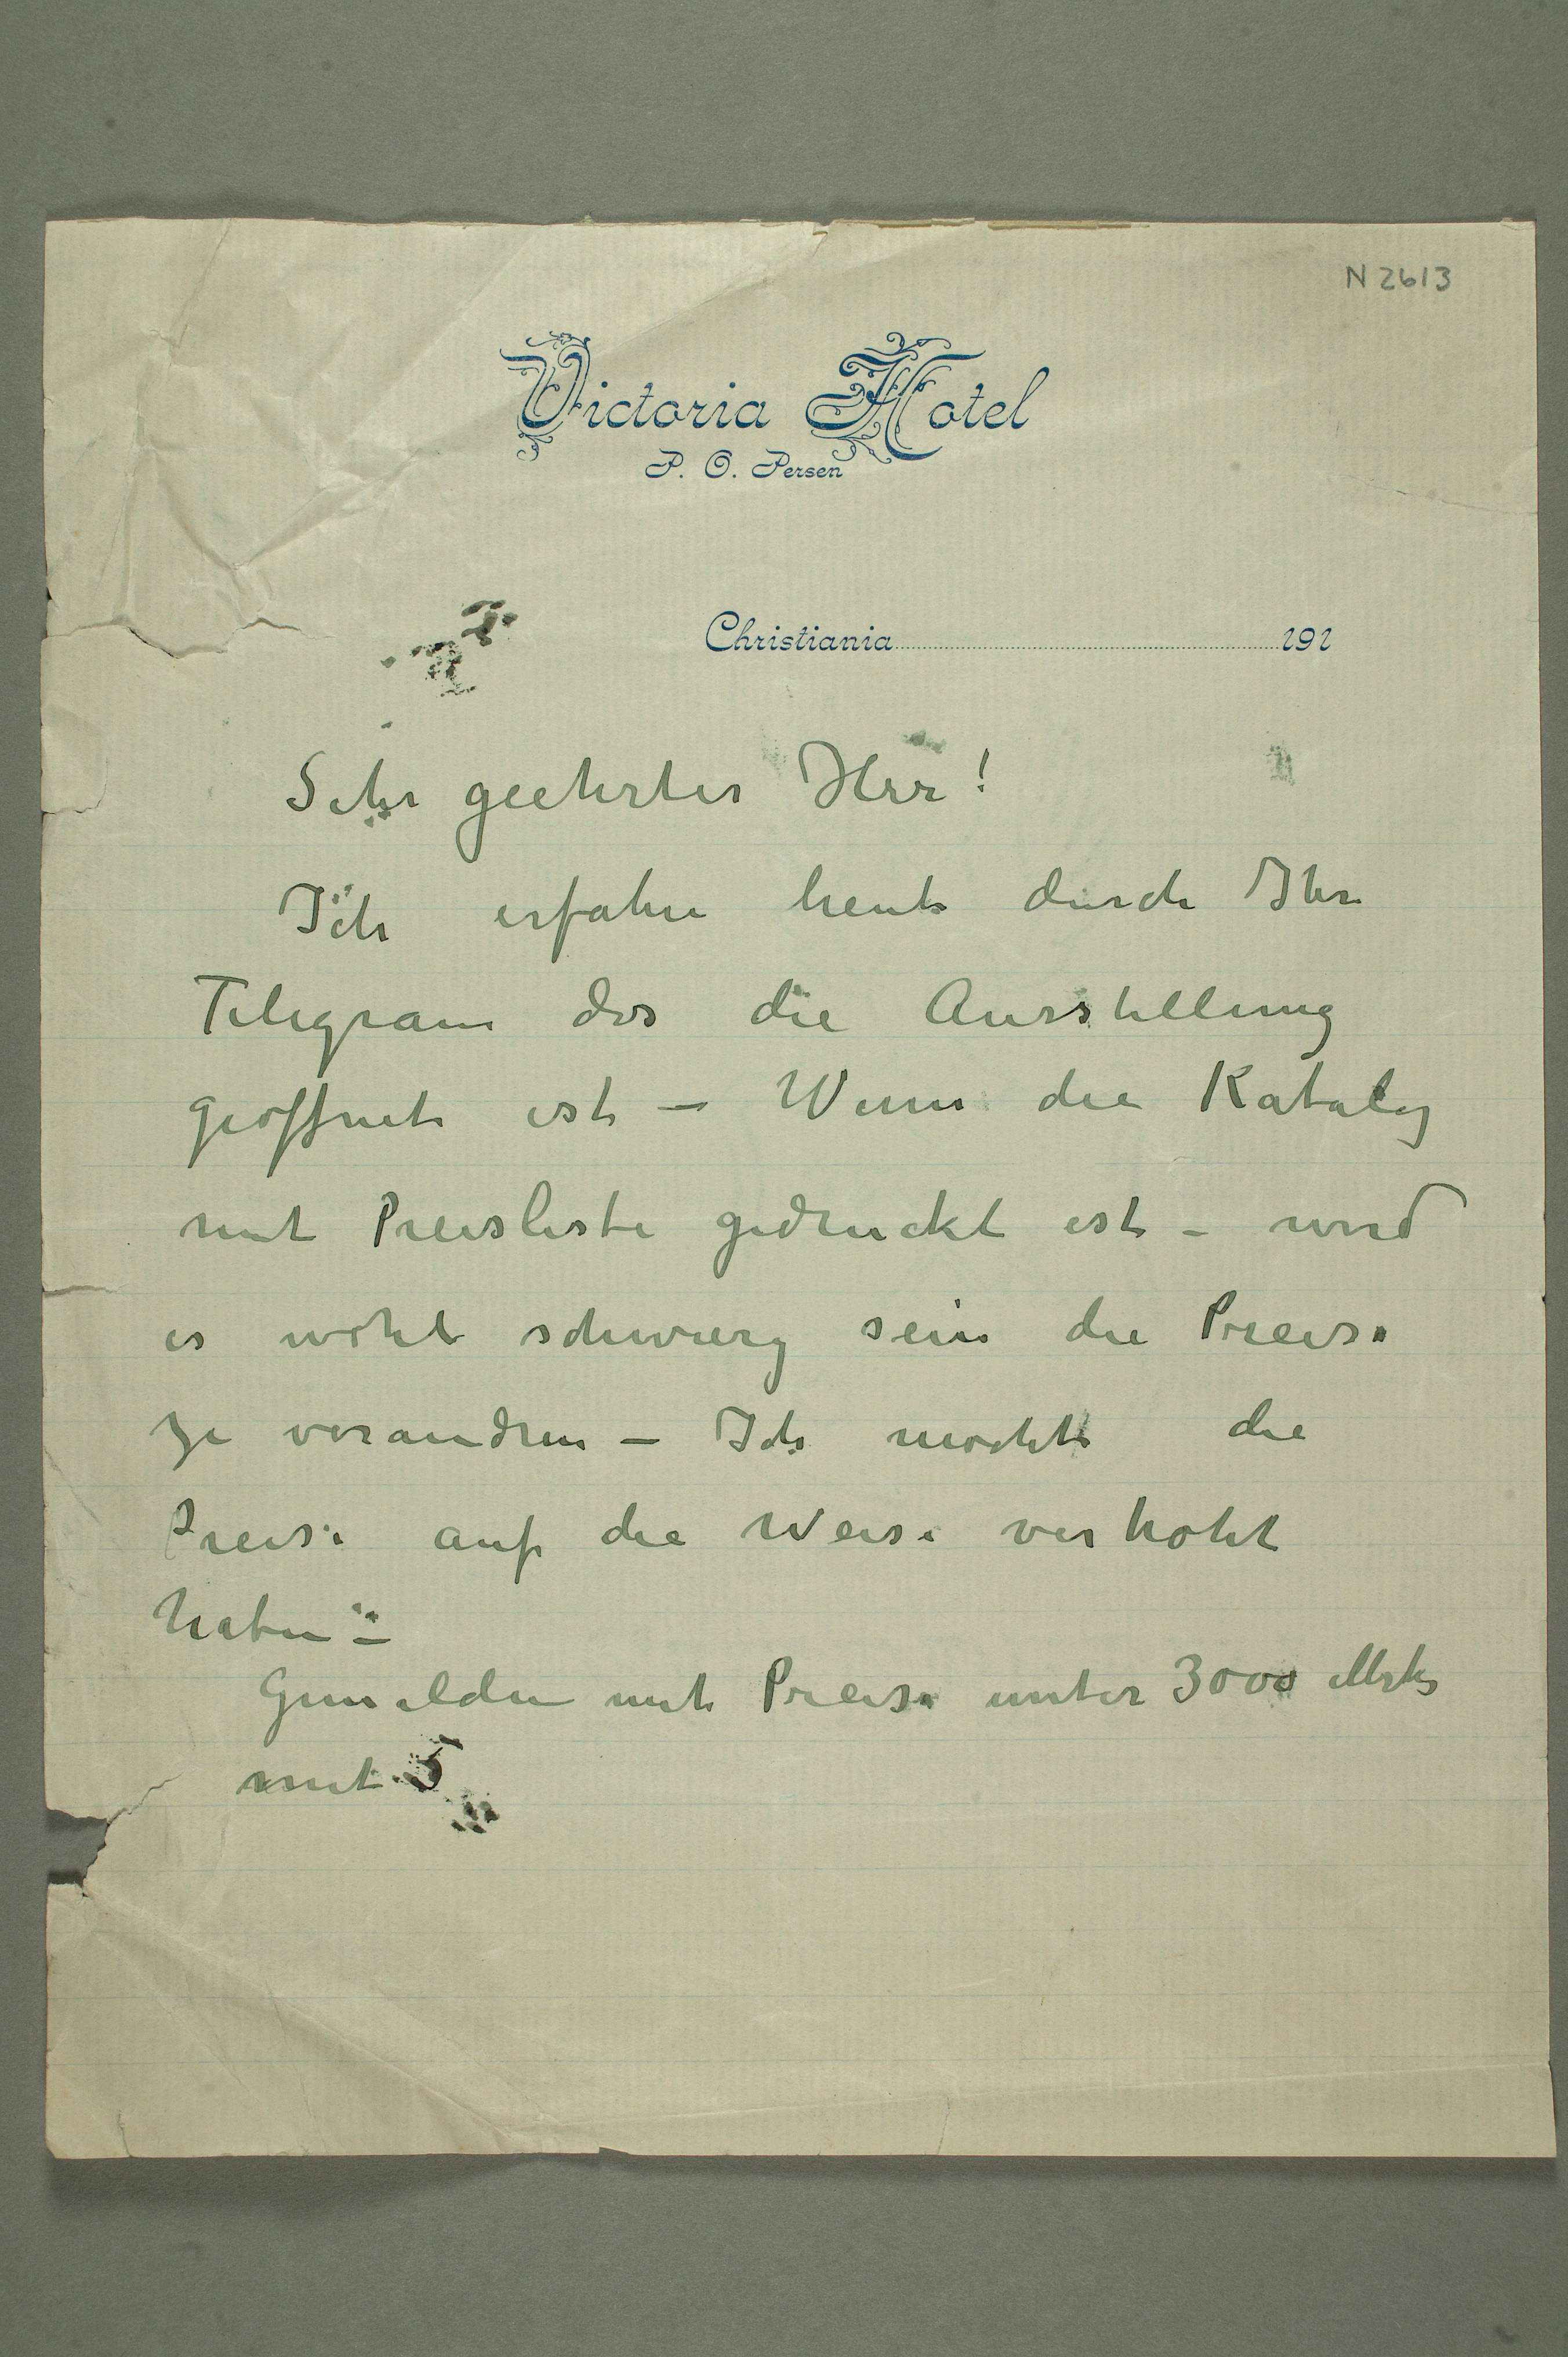 N 2613
Victoria Hotel
P. O. Persen
Christiania 191
Sehr geehrter Herr!
Ich erfahre heute durch Ihre
Telegram das die Ausstellung
geöffnet ist – Wenn die Katalog
mit Preisliste gedruckt ist – wird
es wohl schwierig sein die Preise
zu verandren – Ich mochte die
Preise auf die Weise verhoht
haben –
Gemälden mit Preise unter 3000 Mrk
mit 5